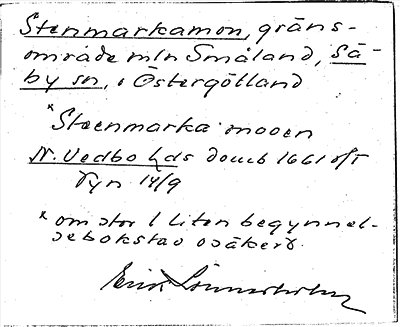 Stenmarkamon, gräns-
område mln Småland, Sä-
by sn, i Östergötland
*Steenmarka mooen
N. Vedbo hds domb 1661 o/T
Tyn 14/9
* om stor l liten begynnel-
sebokstav osäkert.
Erik